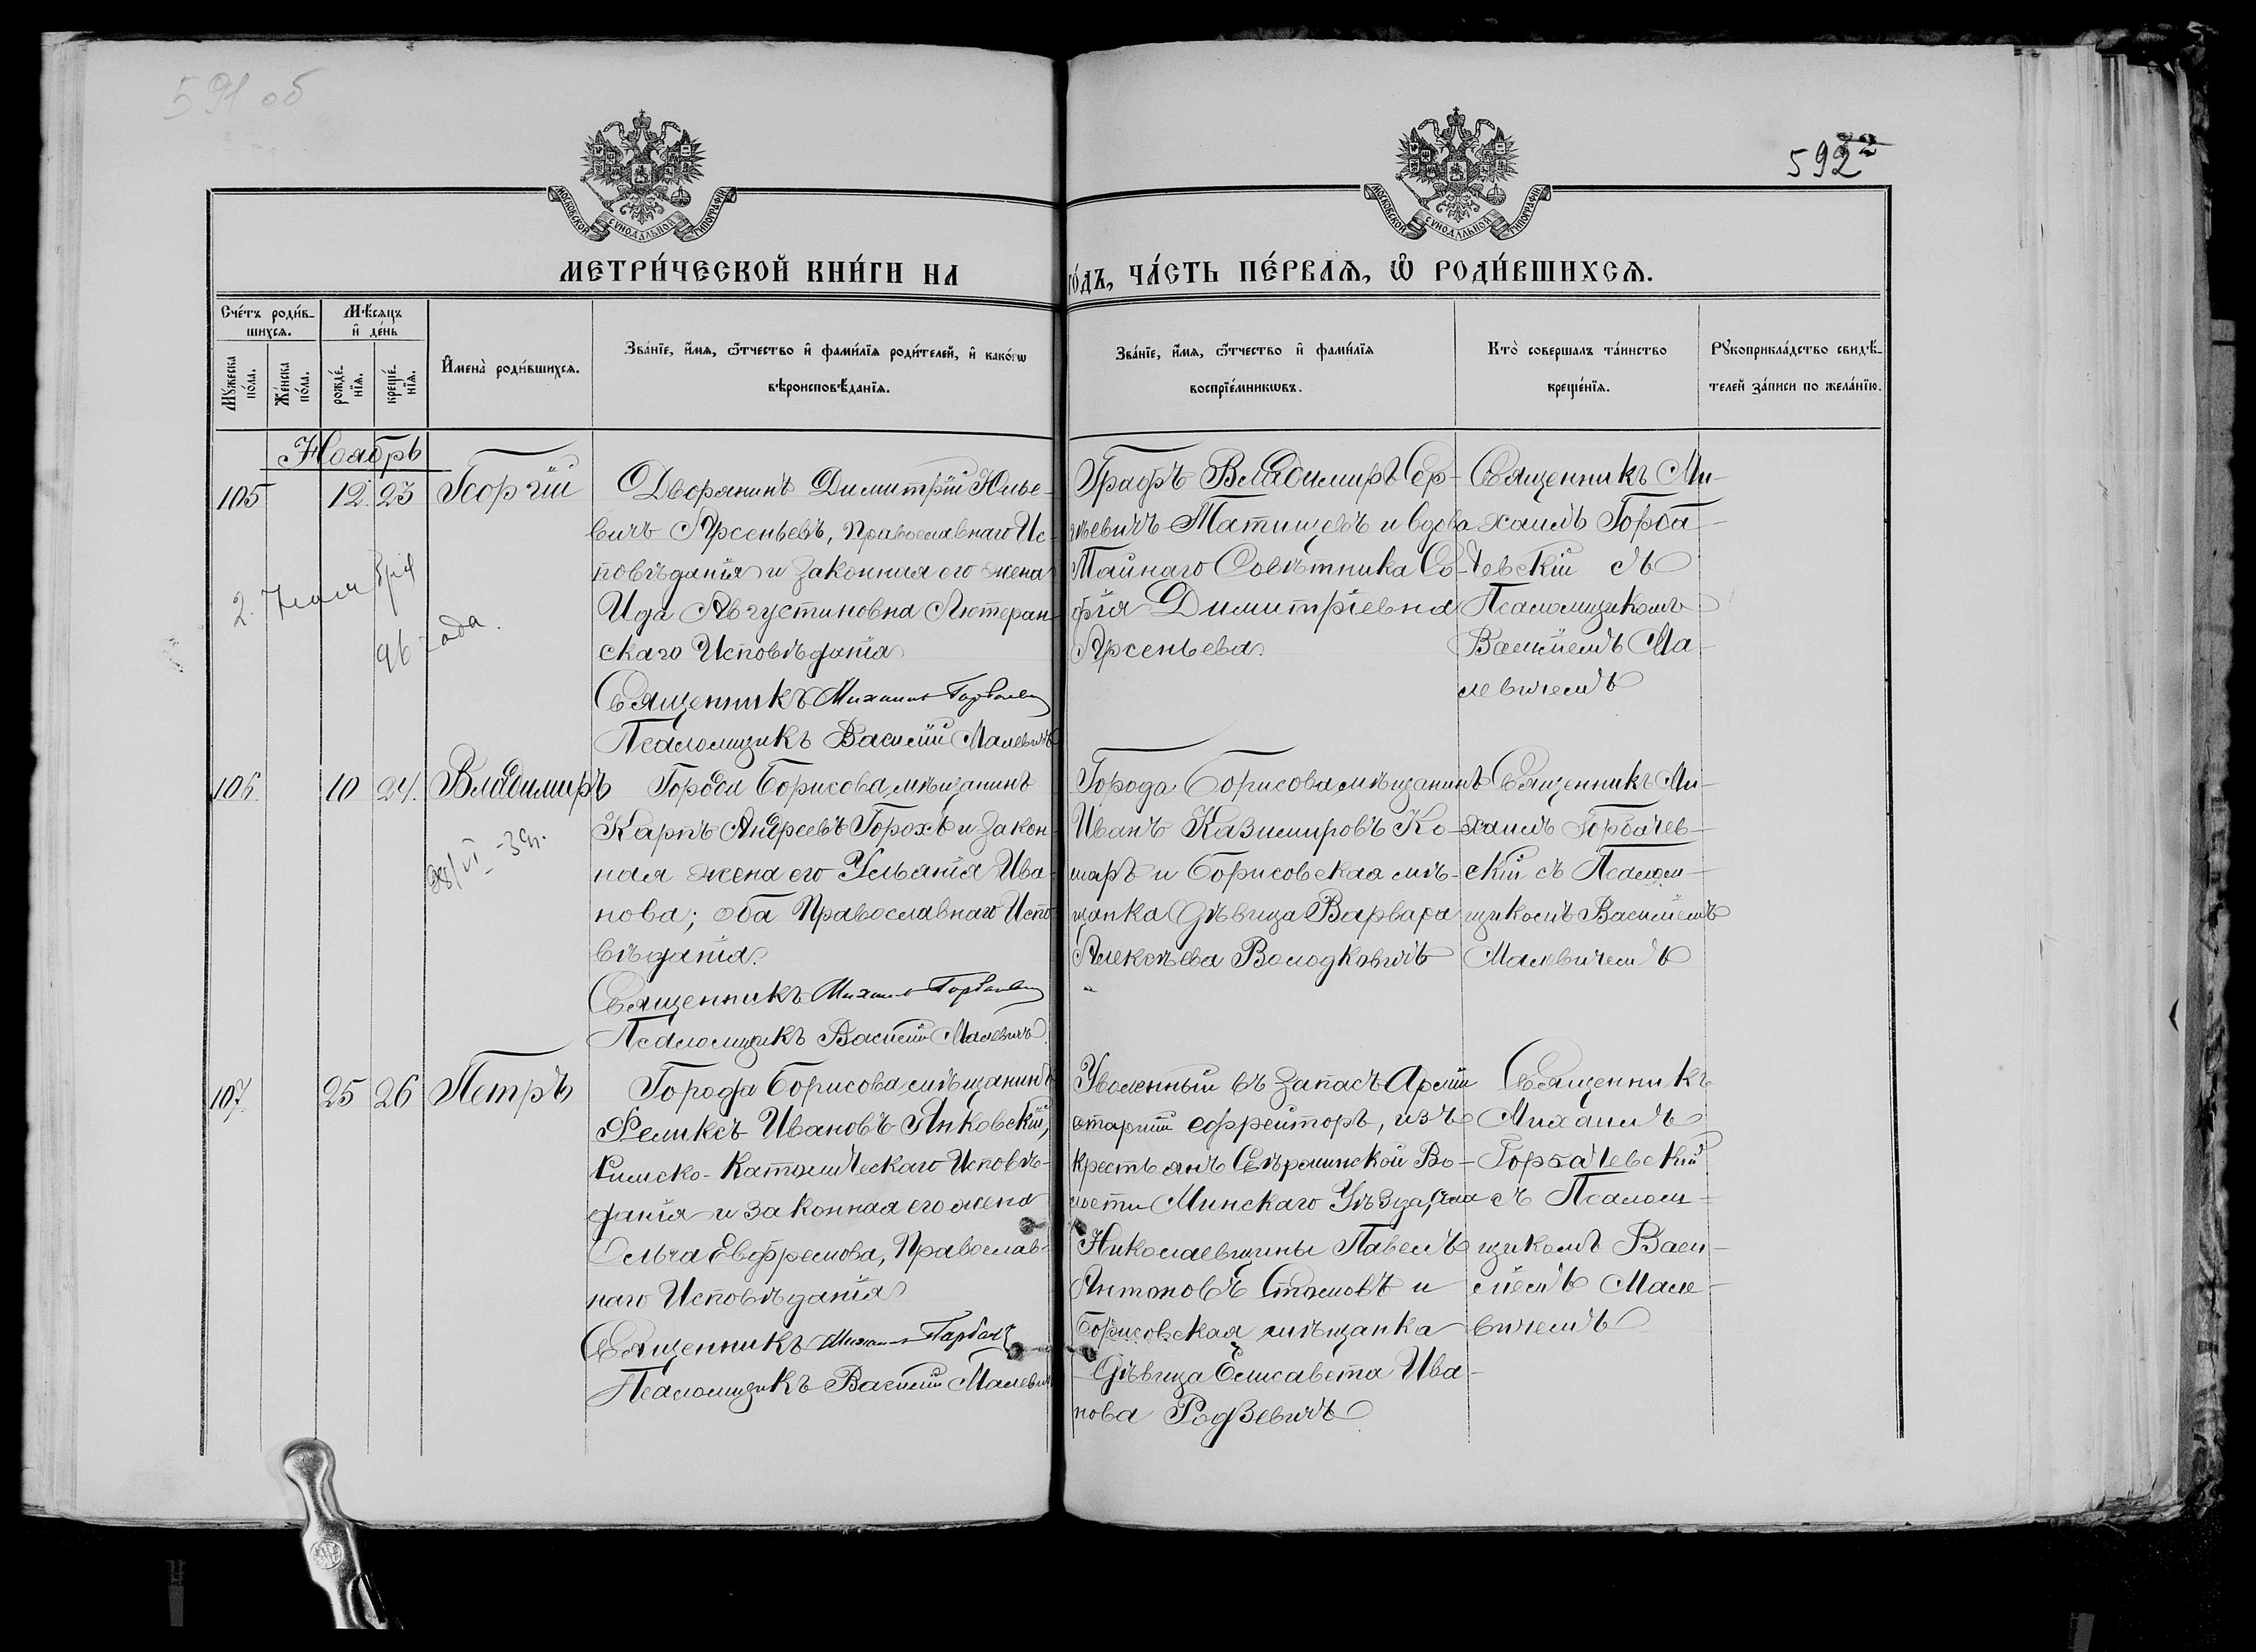 591 об
592
МОСКОВСКОЙ СѴНОДАЛЬНОЙ ТИПОГРАФІИ
МОСКОВСКОЙ СѴНОДАЛЬНОЙ ТИПОГРАФІИ
МЕТРИ́ЧЕСКОЙ КНИ́ГИ НА
ГО́ДЪ, ЧА́СТЬ ПЕ́РВАѦ, Ѡ҆ РОДИ́ВШИХСѦ.
Сче́тъ роди́в-
шихсѧ.
Мѣ́сѧцъ
и҆ де́нь
Мꙋ́жеска
по́ла.
Же́нска
по́ла.
рожде́-
нїѧ.
креще́-
нїѧ.
И҆мена̀ роди́вшихсѧ.
Зва́нїе, и҆́мѧ, ѻ҆́тчество и҆ фами́лїѧ роди́телей, и҆ како́гѡ
вѣроисповѣ́данїѧ.
Зва́нїе, и҆́мѧ, ѻ҆́тчество и҆ фами́лїѧ
воспрїе́мникѡвъ.
Кто̀ соверша́лъ та́инство
креще́нїѧ.
Рꙋкоприкла́дство свидѣ́-
телей за́писи по жела́нїю.
Ноябрь
105 12. 23 Георгій
Дворянинъ Димитрій Юлье-
вичъ Арсеньевъ, Православнаго Ис-
повѣданія и законная его жена
Ида Августиновна Лютеран-
скаго Исповѣданія
Священникъ Михаилъ Горбачев
Псаломщикъ Василій Малевичъ
Графъ Владимиръ Сер-
гѣевичъ Татищевъ и вдова
Тайнаго Совѣтника Со-
фія Димитріевна
Арсеньева.
Священникъ Ми-
хаилъ Горба-
чевскій съ
Псаломщикомъ
Василіемъ Ма-
левичемъ
2.
96 года.
106. 10 24. Владимиръ
28/VI-39г.
Города Борисова мѣщанинъ
Карпъ Андреевъ Горохъ и закон-
ная жена его Ульянія Ива-
нова; оба Православнаго Испо-
вѣданія.
Священникъ Михаилъ Горбачев
Псаломщикъ Василій Малевичъ.
Города Борисова мѣщанинъ
Иванъ Казимировъ Ко-
маръ и Борисовская мѣ-
щанка дѣвица Варвара
Алексѣева Володковичъ
Священникъ Ми-
хаилъ Горбачев-
скій съ Псалом-
щикомъ Василіемъ
Малевичемъ
107. 25 26 Петръ
Города Борисова мѣщанинъ
Феликсъ Ивановъ Янковскій,
Римско-Католическаго Исповѣ-
данія и законная его жена
Ольга Евфремова, Православ-
наго Исповѣданія
Священникъ Михаилъ Горбач
Псаломщикъ Василій Малевич
Уволенный въ запасъ Арміи
старшій ефрейторъ, изъ
крестьянъ Сѣрминской Во-
лости Минскаго Уѣзда, села
Николаевщины Павелъ
Антоновъ Стомовъ и
Борисовская мѣщанка
дѣвица Елисавета Ива-
нова Родзевичъ
Священникъ
Михаилъ
Горбачевскій
съ Псалом-
щикомъ Васи-
ліемъ Мале-
вичемъ